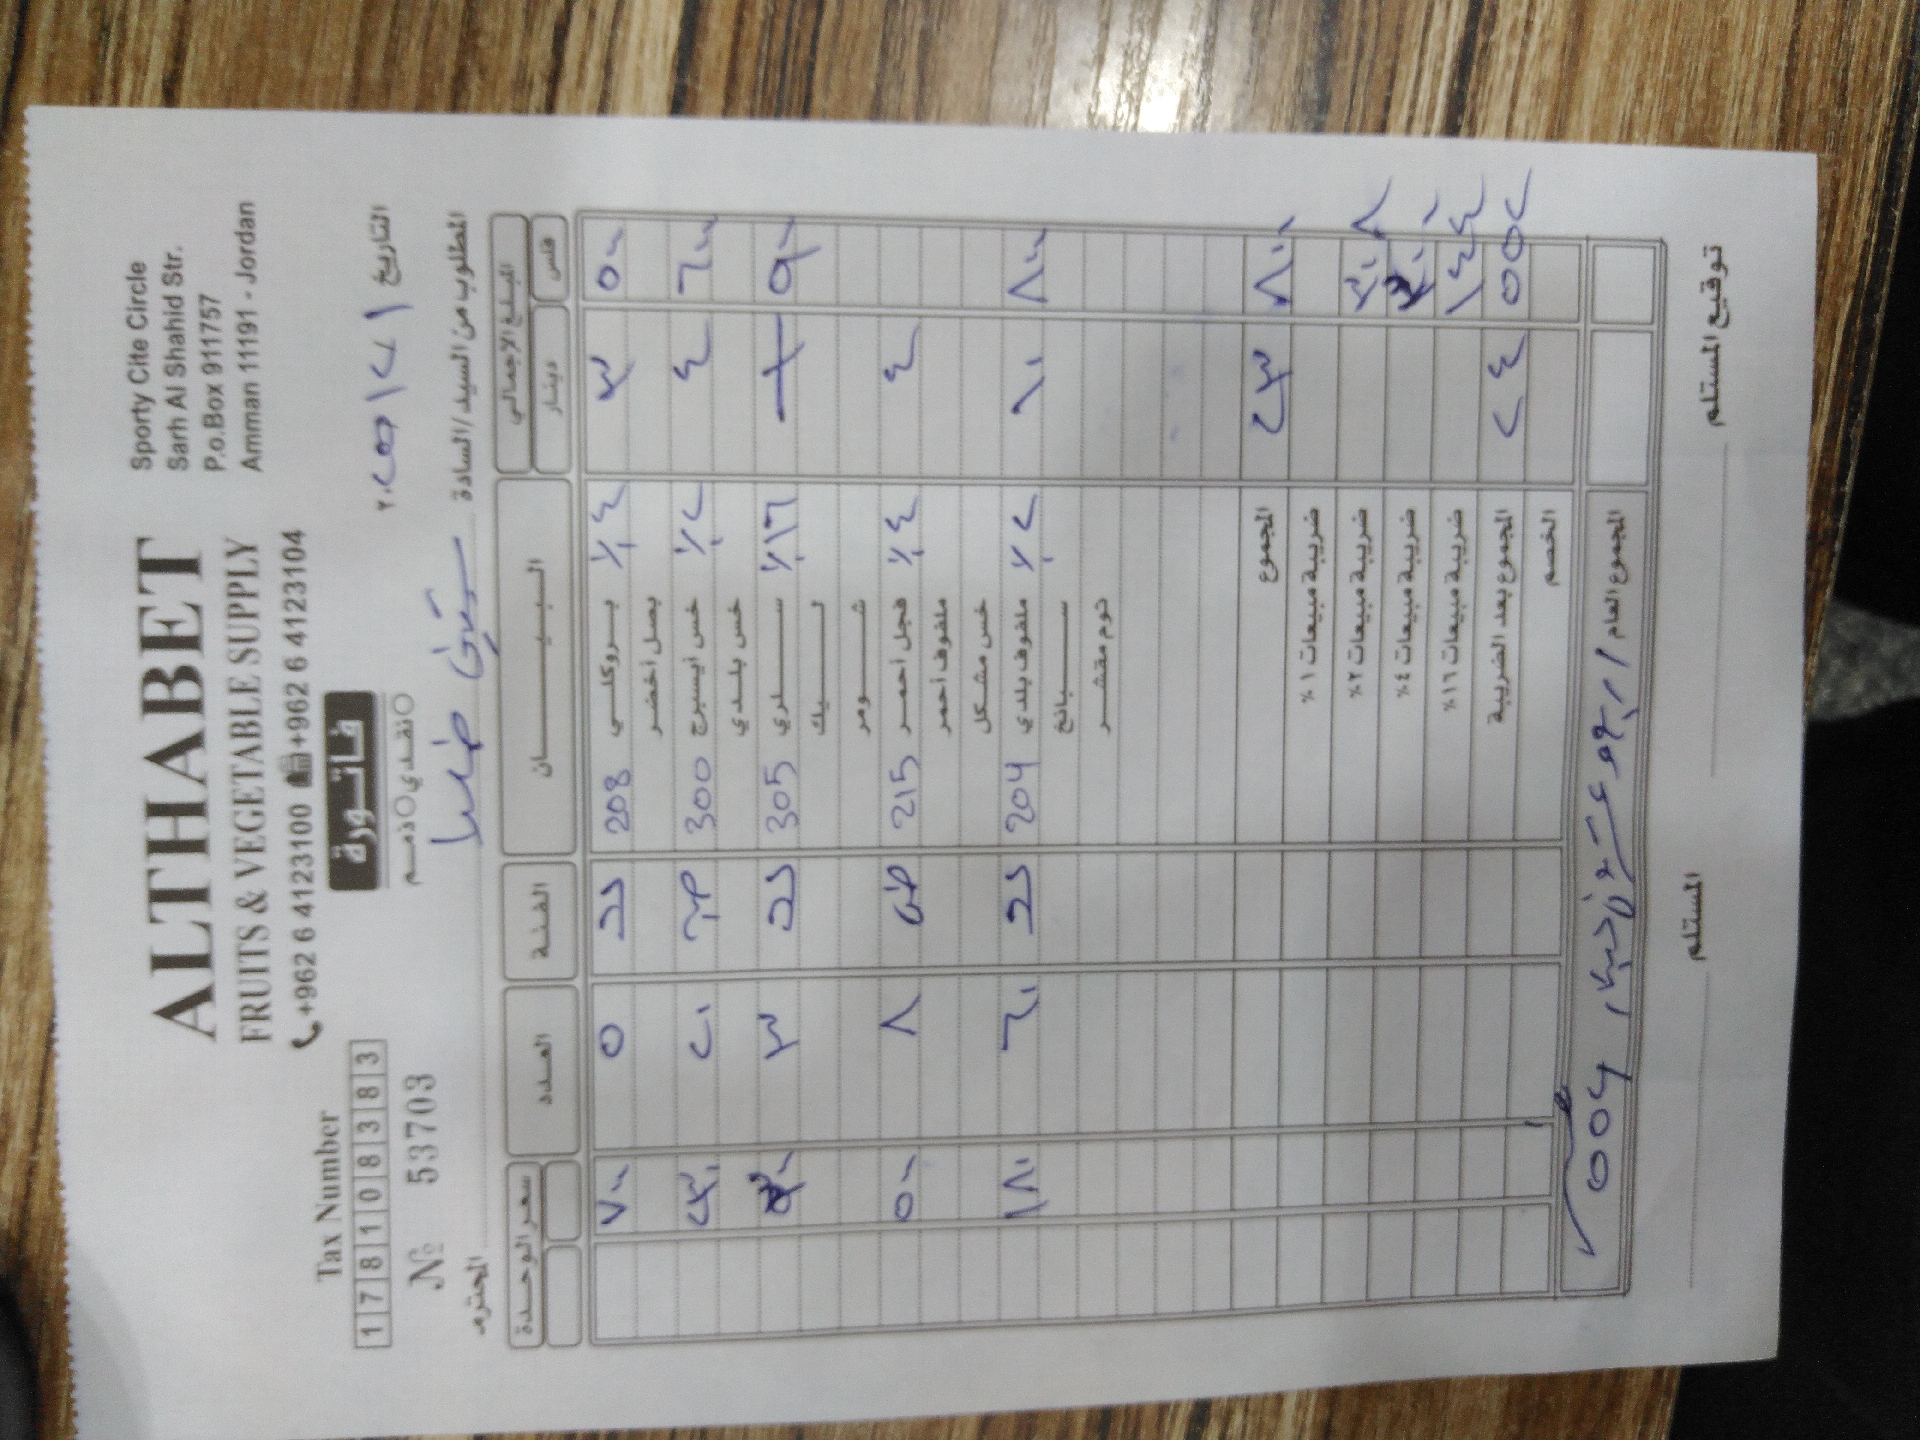 ALTHABET
FRUITS & VEGETABLE SUPPLY
+962 6 4123100 +962 6 4123104
Sporty Cite Circle
Sarh Al Shahid Str.
P.o.Box 911757
Amman 11191 - Jordan
Tax Number
178108383
فاتورة
نقدي ذمم
№ 53703
التاريخ
المطلوب من السيد/السادة
المحترم
سعر الوحدة العدد الفئة البيان المبلغ الإجمالي
دينار فلس
٧٠٠ ٥ 208 بروكلي ٤٪ ٣ ٥٠٠
بصل أخضر
٢٣٠ ٢٠ 300 خس آيسبرج ٢٪ ٤ ٦٠٠
خس بلدي
٣ 305 سلري ١٦٪ ٩٠٠
ليك
شومر
٥٠٠ ٨ 215 فجل أحمر ٤٪ ٤
ملفوف أحمر
خس مشكل
١٨٠ ٦٠ 204 ملفوف بلدي ٢٪ ١٠ ٨٠٠
سبانخ
ثوم مقشر
المجموع ٢٣ ٨٠٠
ضريبة مبيعات ١٪
ضريبة مبيعات ٢٪ ٣٠٨
ضريبة مبيعات ٤٪ ٣٠٠
ضريبة مبيعات ١٦٪ ١٤٤
المجموع بعد الضريبة ٢٤ ٥٥٢
الخصم
المجموع العام / اربعة وعشرون دينار
المستلم
توقيع المستلم